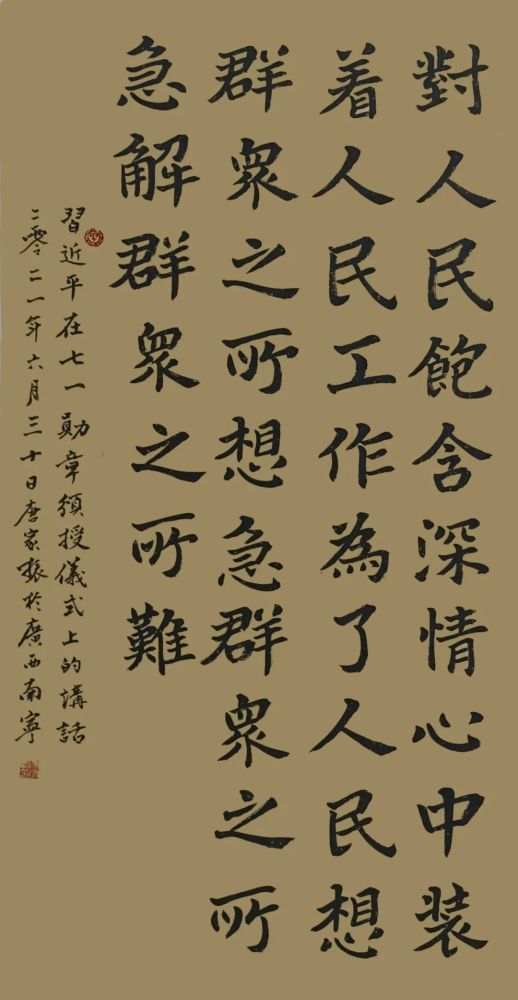 對人民飽含深情心中裝
着人民工作為了人民想
群衆之所想急群衆之所
急解群衆之所難
習近平在七一勛章頒授儀式上的講話
二零二一年六月三十日唐家振於廣西南寧